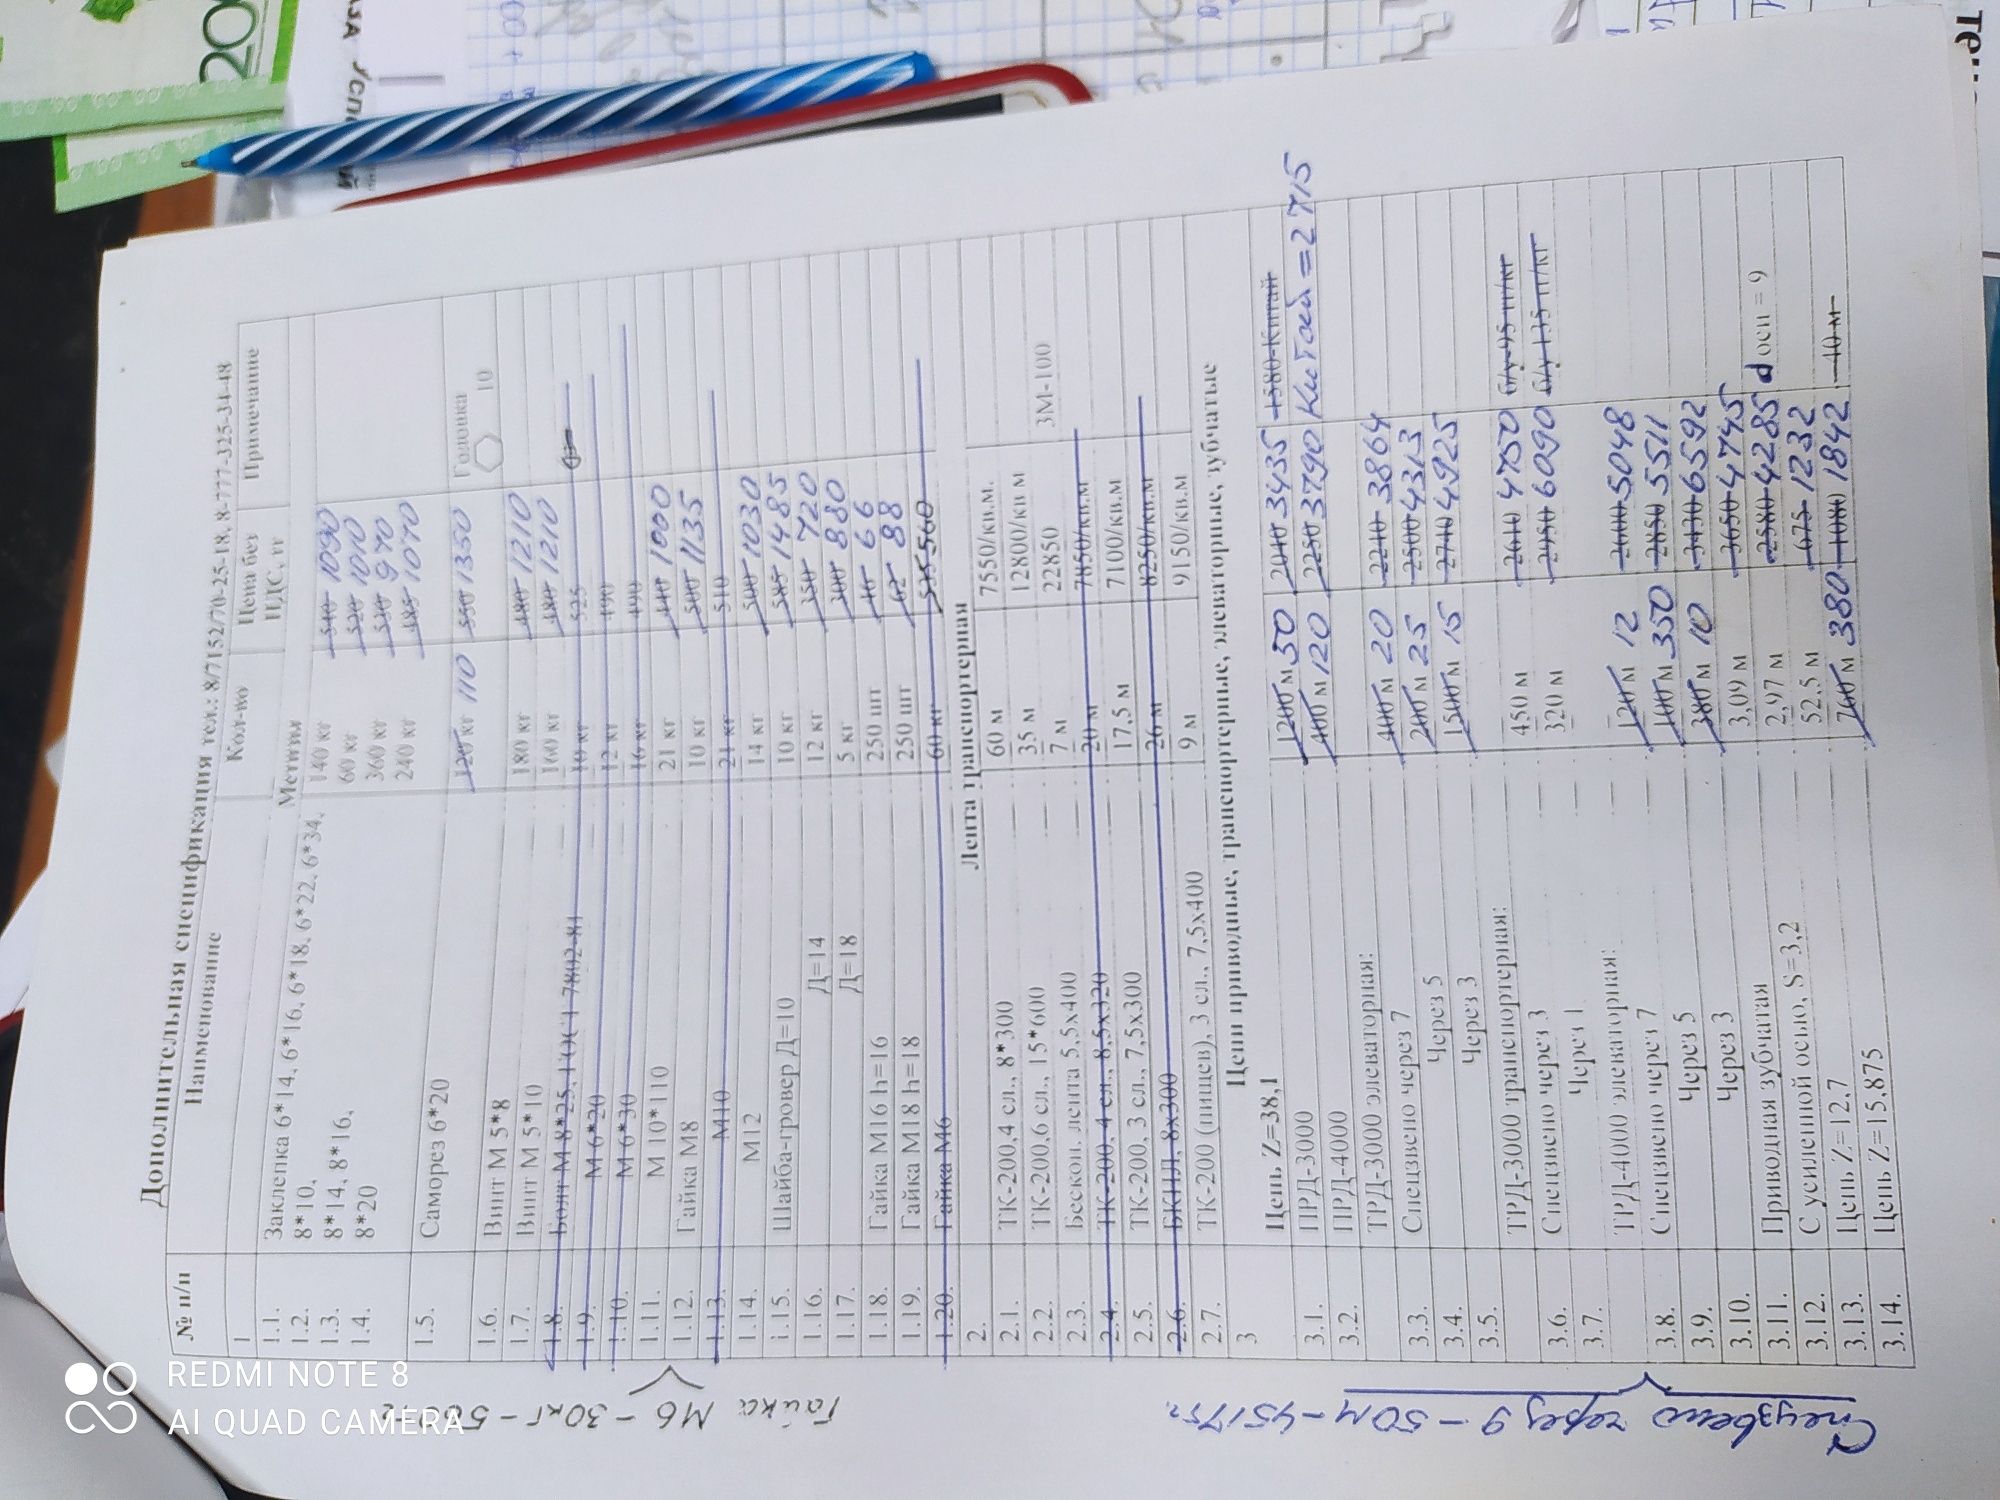 Дополнительная спецификация тел.: 8/7152/70-25-18, 8-777-325-34-48
№ п/п Наименование Кол-во Цена без НДС, тг Примечание
1 Метизы
1.1. Заклепка 6*14, 6*16, 6*16, 6*18, 6*22, 6*34, 140 кг 510 1090
1.2. 8*10, 60 кг 520 1010
1.3. 8*14, 8*16, 360 кг 970
1.4. 8*20 240 кг 485 1070
1.5. Саморез 6*20 120 кг 110 550 1350 Головка 10
1.6. Винт М 5*8 180 кг 480 1210
1.7. Винт М 5*10 160 кг 480 1210
1.8. Болт М 8*25, ГОСТ 7802-81 10 кг 525
1.9. М 6*20 12 кг 490
1.10. М 6*30 16 кг 490
1.11. М 10*110 21 кг 440 1000
1.12. Гайка М8 10 кг 500 1135
1.13. М10 21 кг 510
1.14. М12 14 кг 500 1030
1.15. Шайба-гровер Д=10 10 кг 585 1485
1.16. Д=14 12 кг 350 720
1.17. Д=18 5 кг 300 880
1.18. Гайка М16 h=16 250 шт 40 66
1.19. Гайка М18 h=18 250 шт 62 88
1.20. Гайка М6 60 кг 535 560
2. Лента транспортерная
2.1. ТК-200,4 сл., 8*300 60 м 7550/кв.м.
2.2. ТК-200,6 сл., 15*600 35 м 12800/кв м
2.3. Бескон. лента 5,5х400 7 м 22850 3М-100
2.4. ТК-200, 4 сл., 8,5х320 20 м 7850/кв.м
2.5. ТК-200, 3 сл., 7,5х300 17,5 м 7100/кв.м
2.6. БКНЛ, 8х300 26 м 8250/кв.м
2.7. ТК-200 (пищев), 3 сл., 7,5х400 9 м 9150/кв.м
3 Цепи приводные, транспортерные, элеваторные, зубчатые
Цепь Z=38,1
3.1. ПРД-3000 1200 м 50 2040 3435 1580-Китай
3.2. ПРД-4000 400 м 120 2250 3790 Китай = 2715
ТРД-3000 элеваторная:
3.3. Спецзвено через 7 400 м 20 2240 3864
3.4. Через 5 200 м 25 2500 4313
3.5. Через 3 1500 м 15 2740 4925
ТРД-3000 транспортерная:
3.6. Спецзвено через 3 450 м 2610 4750 б/у-95 тг/кг
3.7. Через 1 320 м 2450 6090 б/у 135 тг/кг
ТРД-4000 элеваторная:
3.8. Спецзвено через 7 1200 м 12 2600 5048
3.9. Через 5 100 м 350 2850 5511
3.10. Через 3 380 м 10 3430 6592
3.11. Приводная зубчатая 3,09 м 3650 4745
3.12. С усиленной осью, S=3,2 2,97 м 2580 4285 d оси = 9
3.13. Цепь Z=12,7 52,5 м 675 1232
3.14. Цепь Z=15,875 700 м 380 1080 1842 40 м
Гайка М6 - 30кг -
Спецзвено через 9 - 50м - 4517тг.
REDMI NOTE 8
AI QUAD CAMERA